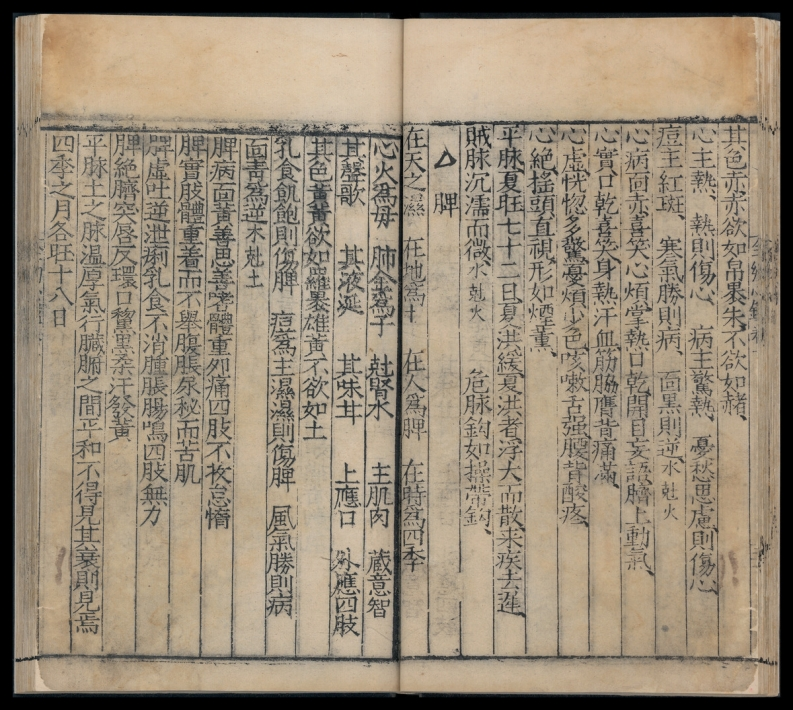 其色赤赤欲如帛裹朱不欲如赭
心主熱 熱則傷心 病主驚熱 憂愁思慮則傷心
痘主紅斑 寒氣勝則病 面黑則逆水尅火
心病面赤喜笑心煩掌熱口乾開目妄語臍上動氣
心實口乾喜笑身熱汗血筋脇膺背痛滿
心虛恍惚多驚憂煩少色咳嗽舌强腰背酸疼
心絶搖頭直視形如煙薰
平脉夏旺七十二日夏洪緩夏洪者浮大而散来疾去遲
賊脉沉濡而微水尅火 危脉鈎如操帶鈎
△ 脾
在天之濕 在地爲土 在人爲脾 在時爲四季
心火爲母 肺金爲子 尅腎水 主肌肉 藏意智
其聲歌 其液涎 其味甘 上應口 外應四肢
其色黄黄欲如羅裹雄黄不欲如土
乳食飢飽則傷脾 痘爲主濕濕則傷脾 風氣勝則病
面靑爲逆木尅土
脾病面黄善思善噫體重夘痛四肢不收怠惰
脾實肢體重着而不舉腹脹尿秘而苦肌
脾虛吐逆泄痢乳食不消腫脹腸鳴四肢無力
脾絶臍突唇反環口黧黑柔汗發黄
平脉土之脉温厚氣行臟腑之間平和不得見其衰則見焉
四季之月各旺十八日